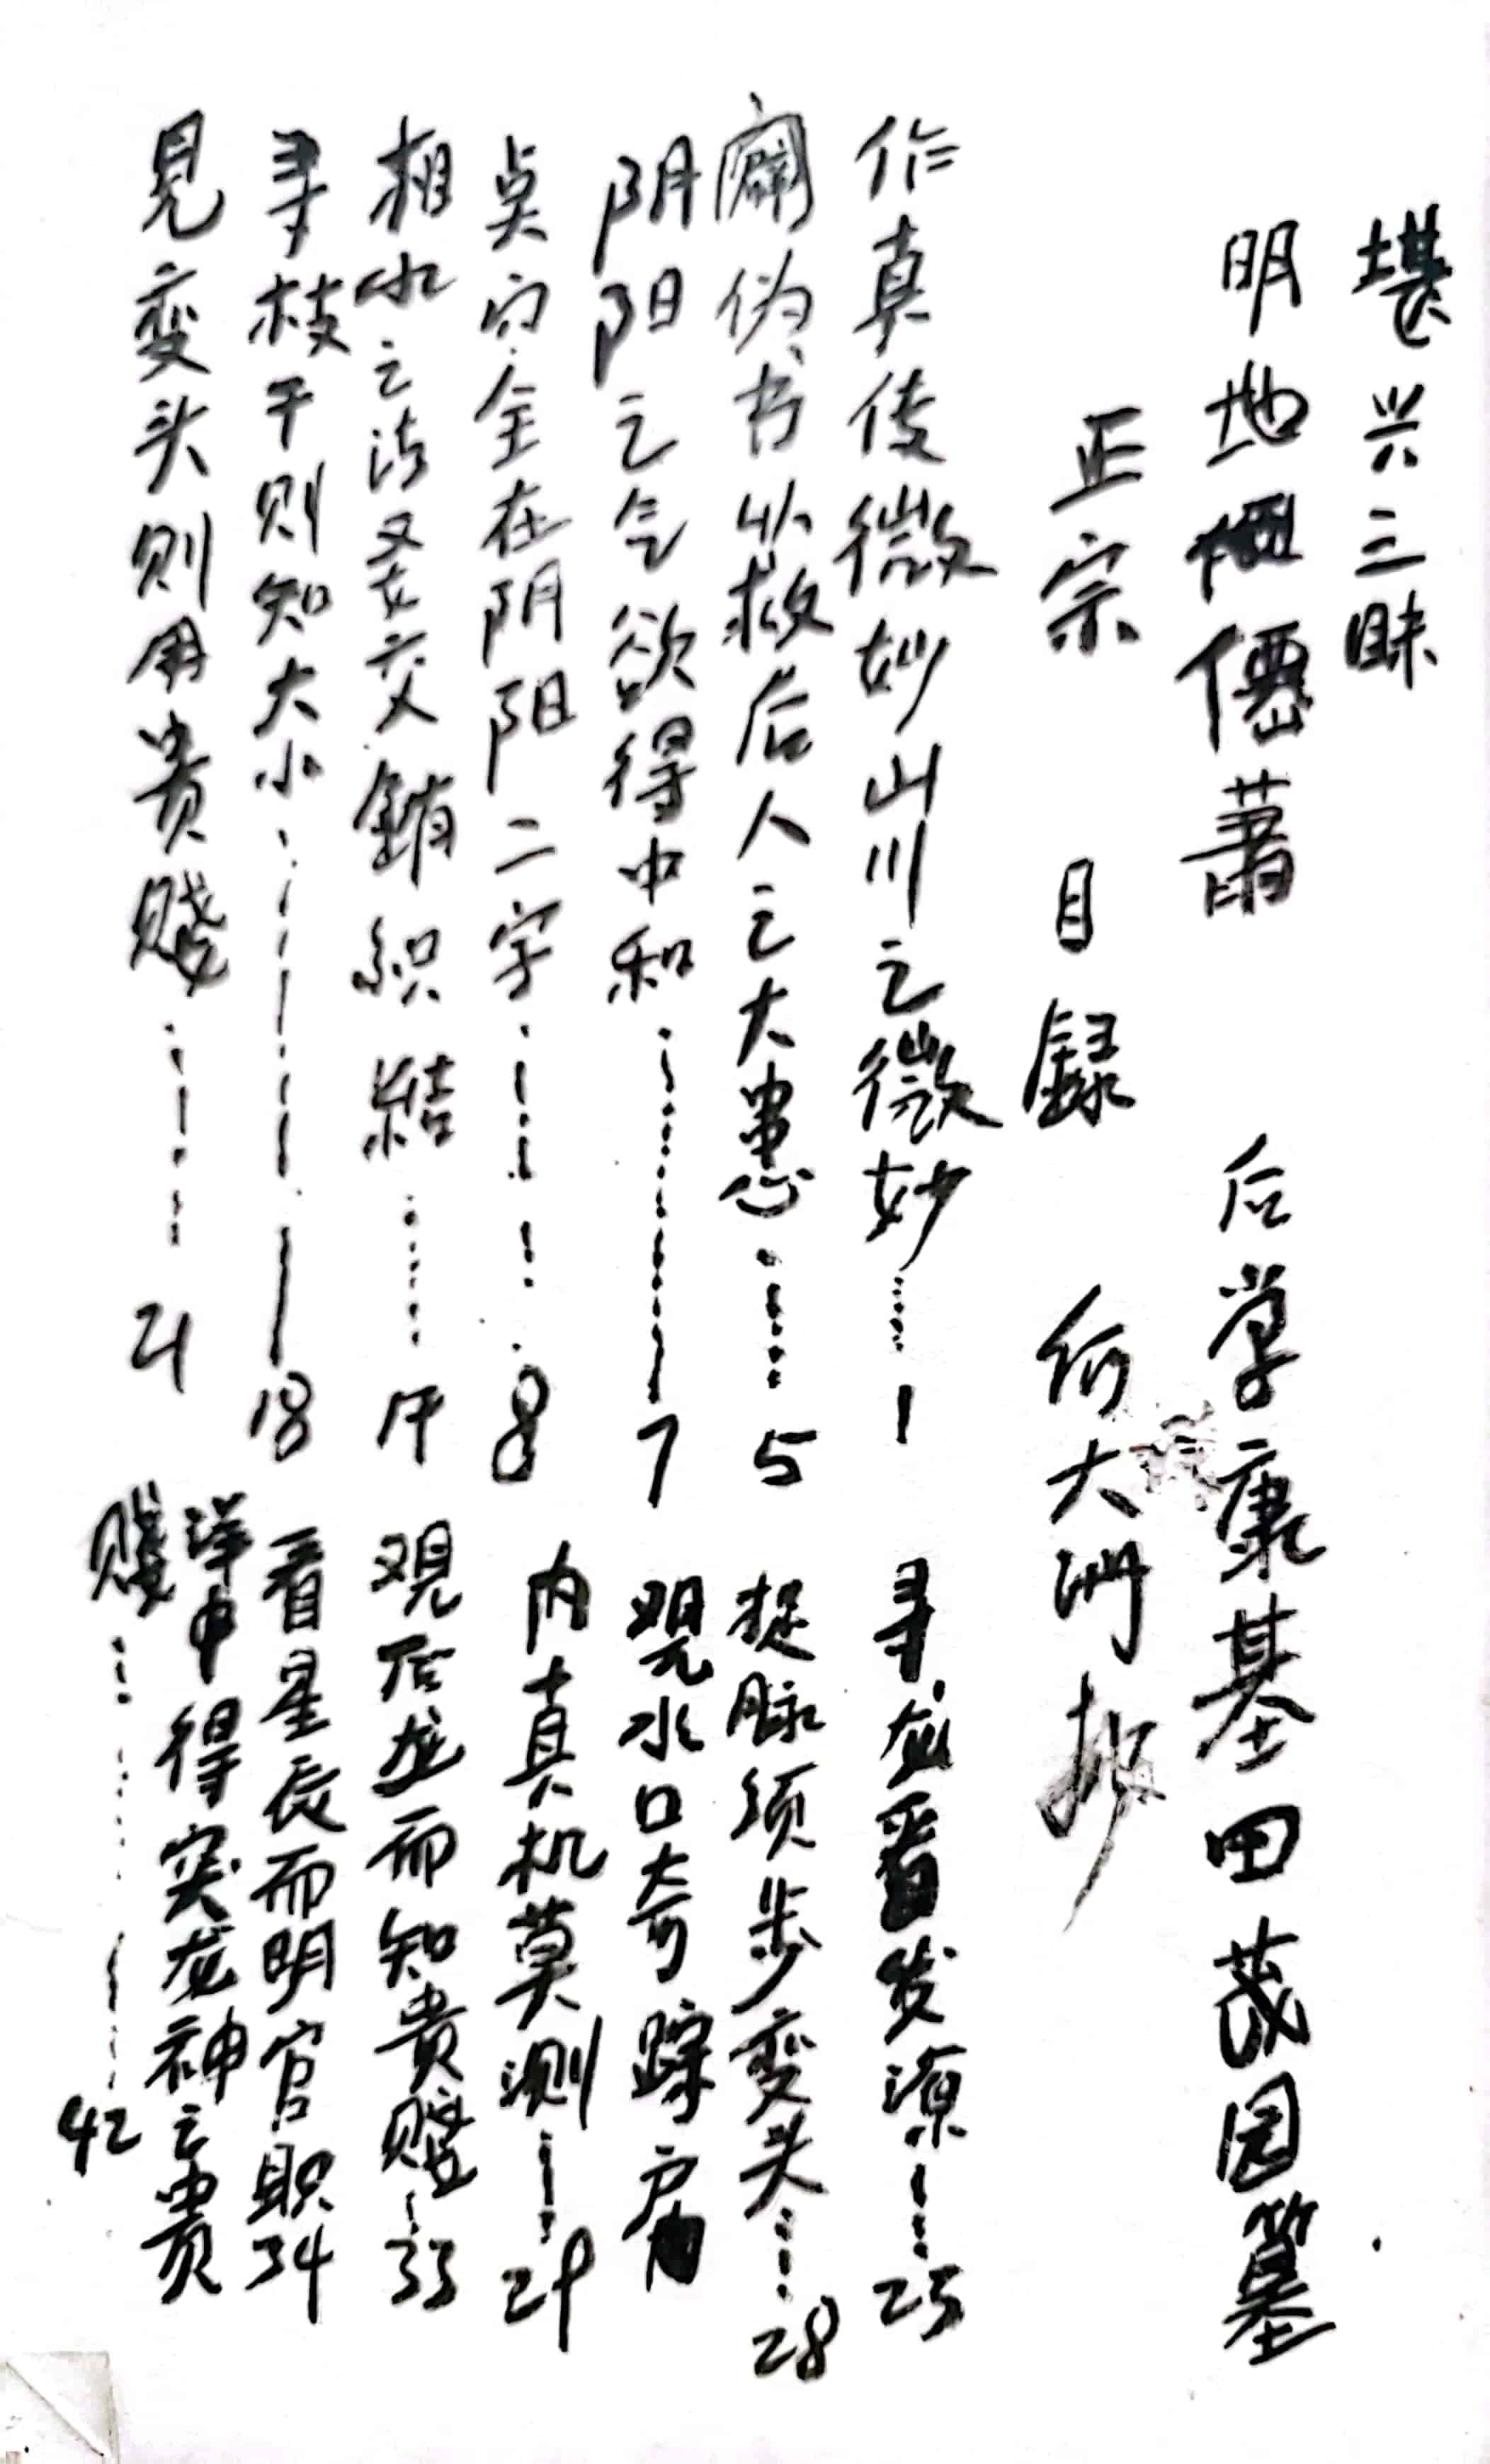 堪兴三昧
明地僊 萧 后学康基田茂园墓
正宗 目録 何大洲抄
作真传微妙山川之微妙……1
闢伪书以救后人之大患……5
阴阳之气欲得中和……7
点穴全在阴阳二字……8
相水之法 又要交銷织结……17
寻枝干则知大小……18
見变头则用贵賤……21
寻龙看发源……25
捉脉须步变头……28
覌水口奇踪
内真机莫测……29
观后龙而知贵賤……33
看星辰而明官职34
得突龙神之贵
賤……42